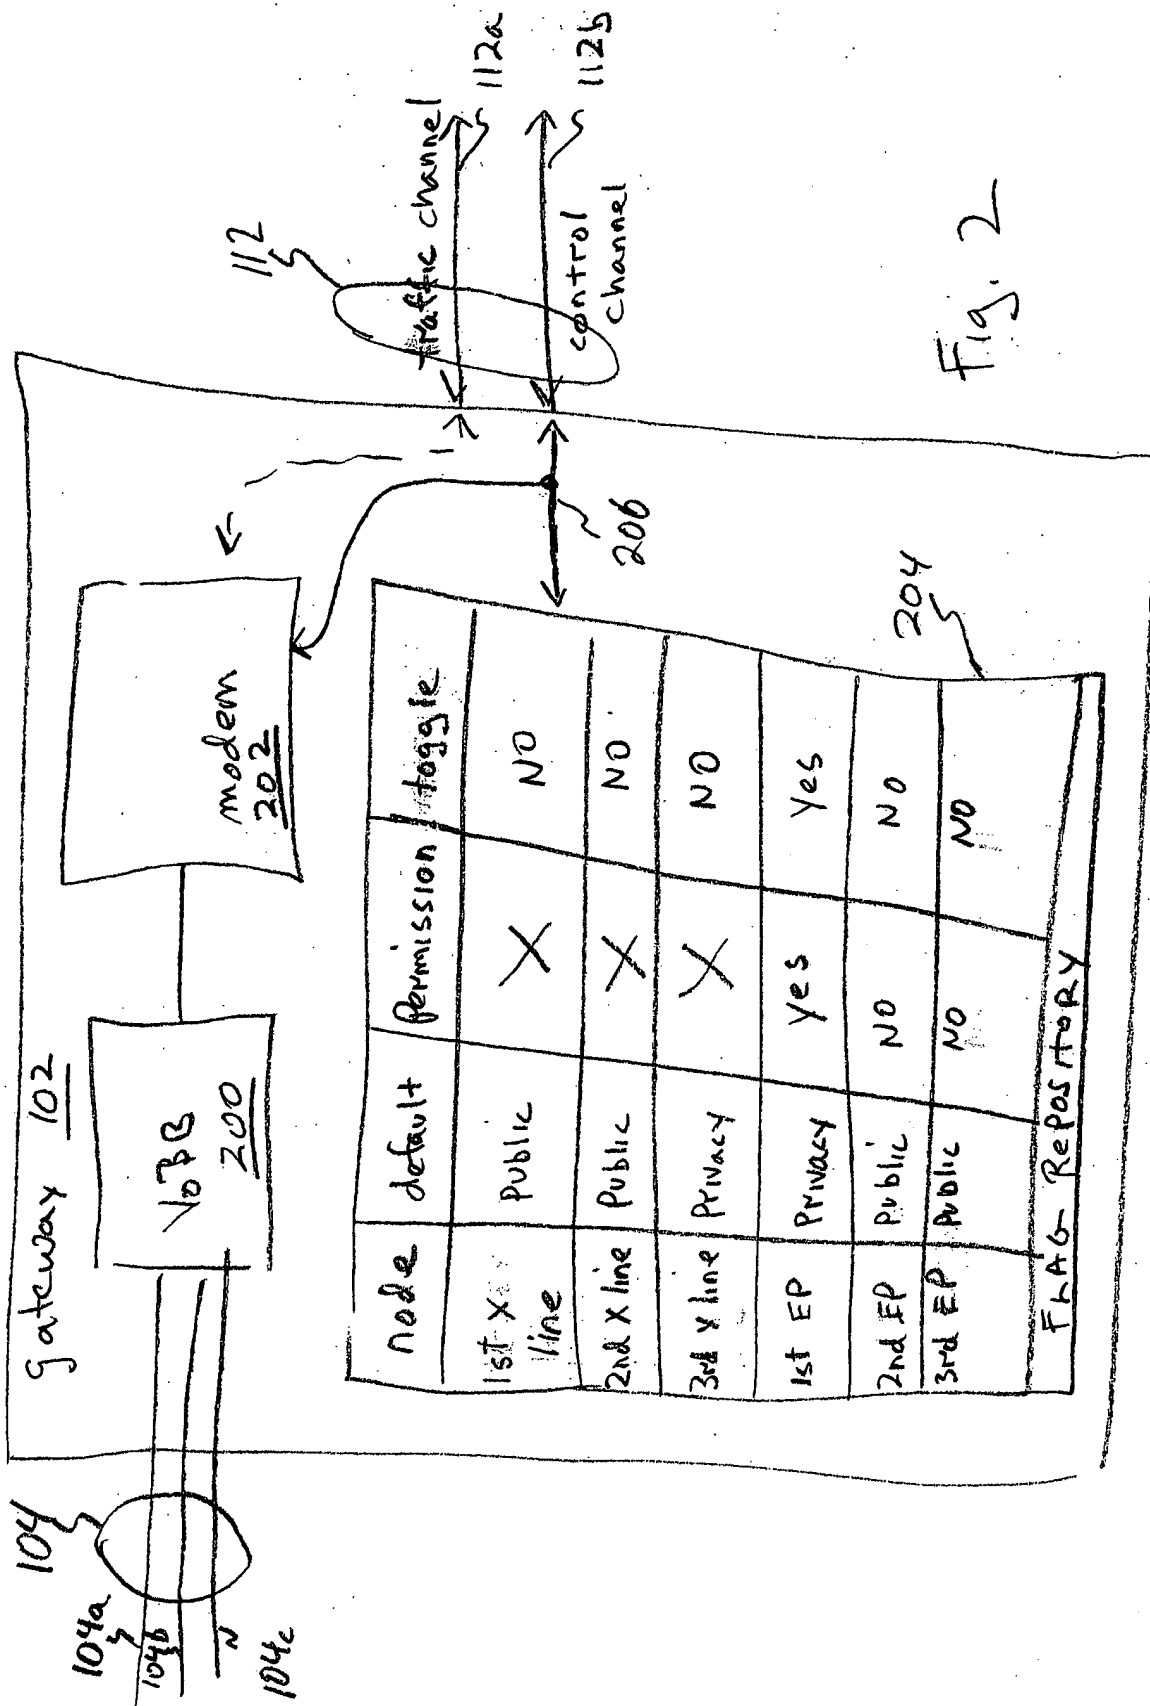 104
104a
104b
104c
gateway 102
VoBB
200
modem
202
112
traffic channel
112a
control
channel
112b
206
node default Permission toggle
1st X line Public X NO
2nd X line Public X NO
3rd X line Privacy X NO
1st EP Privacy Yes Yes
2nd EP Public NO NO
3rd EP Public NO NO
FLAG RePOSITORY
204
Fig. 2